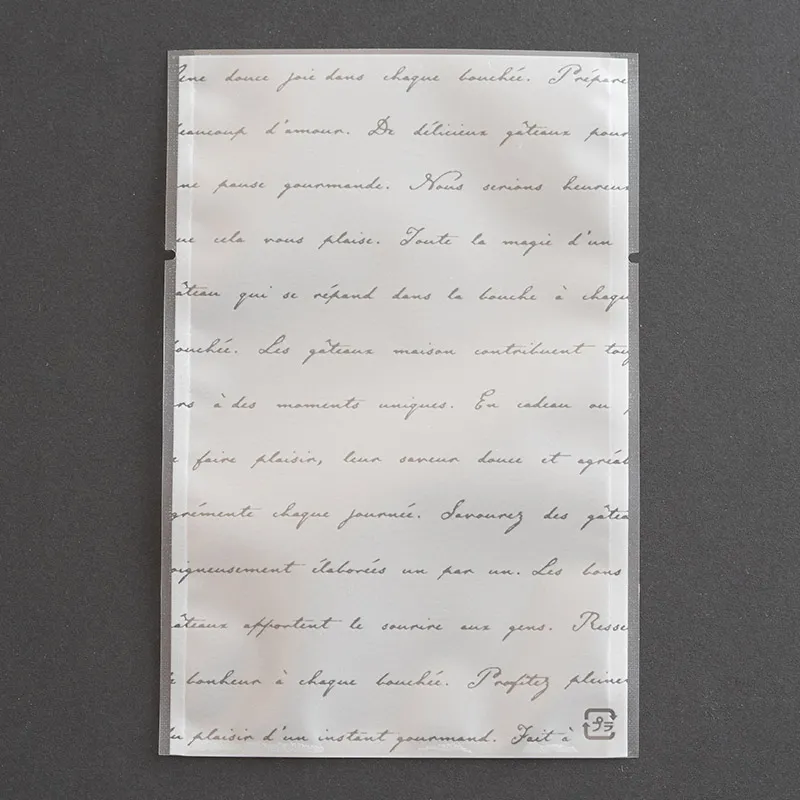 Une douce joie dans chaque bouchée. Prépare
beaucoup d'amour. De délicieux gâteaux pour
ne pause gourmande. Nous serions heureux
ue cela vous plaise. Toute la magie d'un
âteau qui se répand dans la bouche à chaqu
ouchée. Les gâteaux maison contribuent touj
rs à des moments uniques. En cadeau ou p
e faire plaisir, leur saveur douce et agréab
grémente chaque journée. Savourez des gâtea
oigneusement élaborés un par un. Les bons
âteaux apportent le sourire aux gens. Resse
e bonheur à chaque bouchée. Profitez pleinem
du plaisir d'un instant gourmand. Fait à
プラ